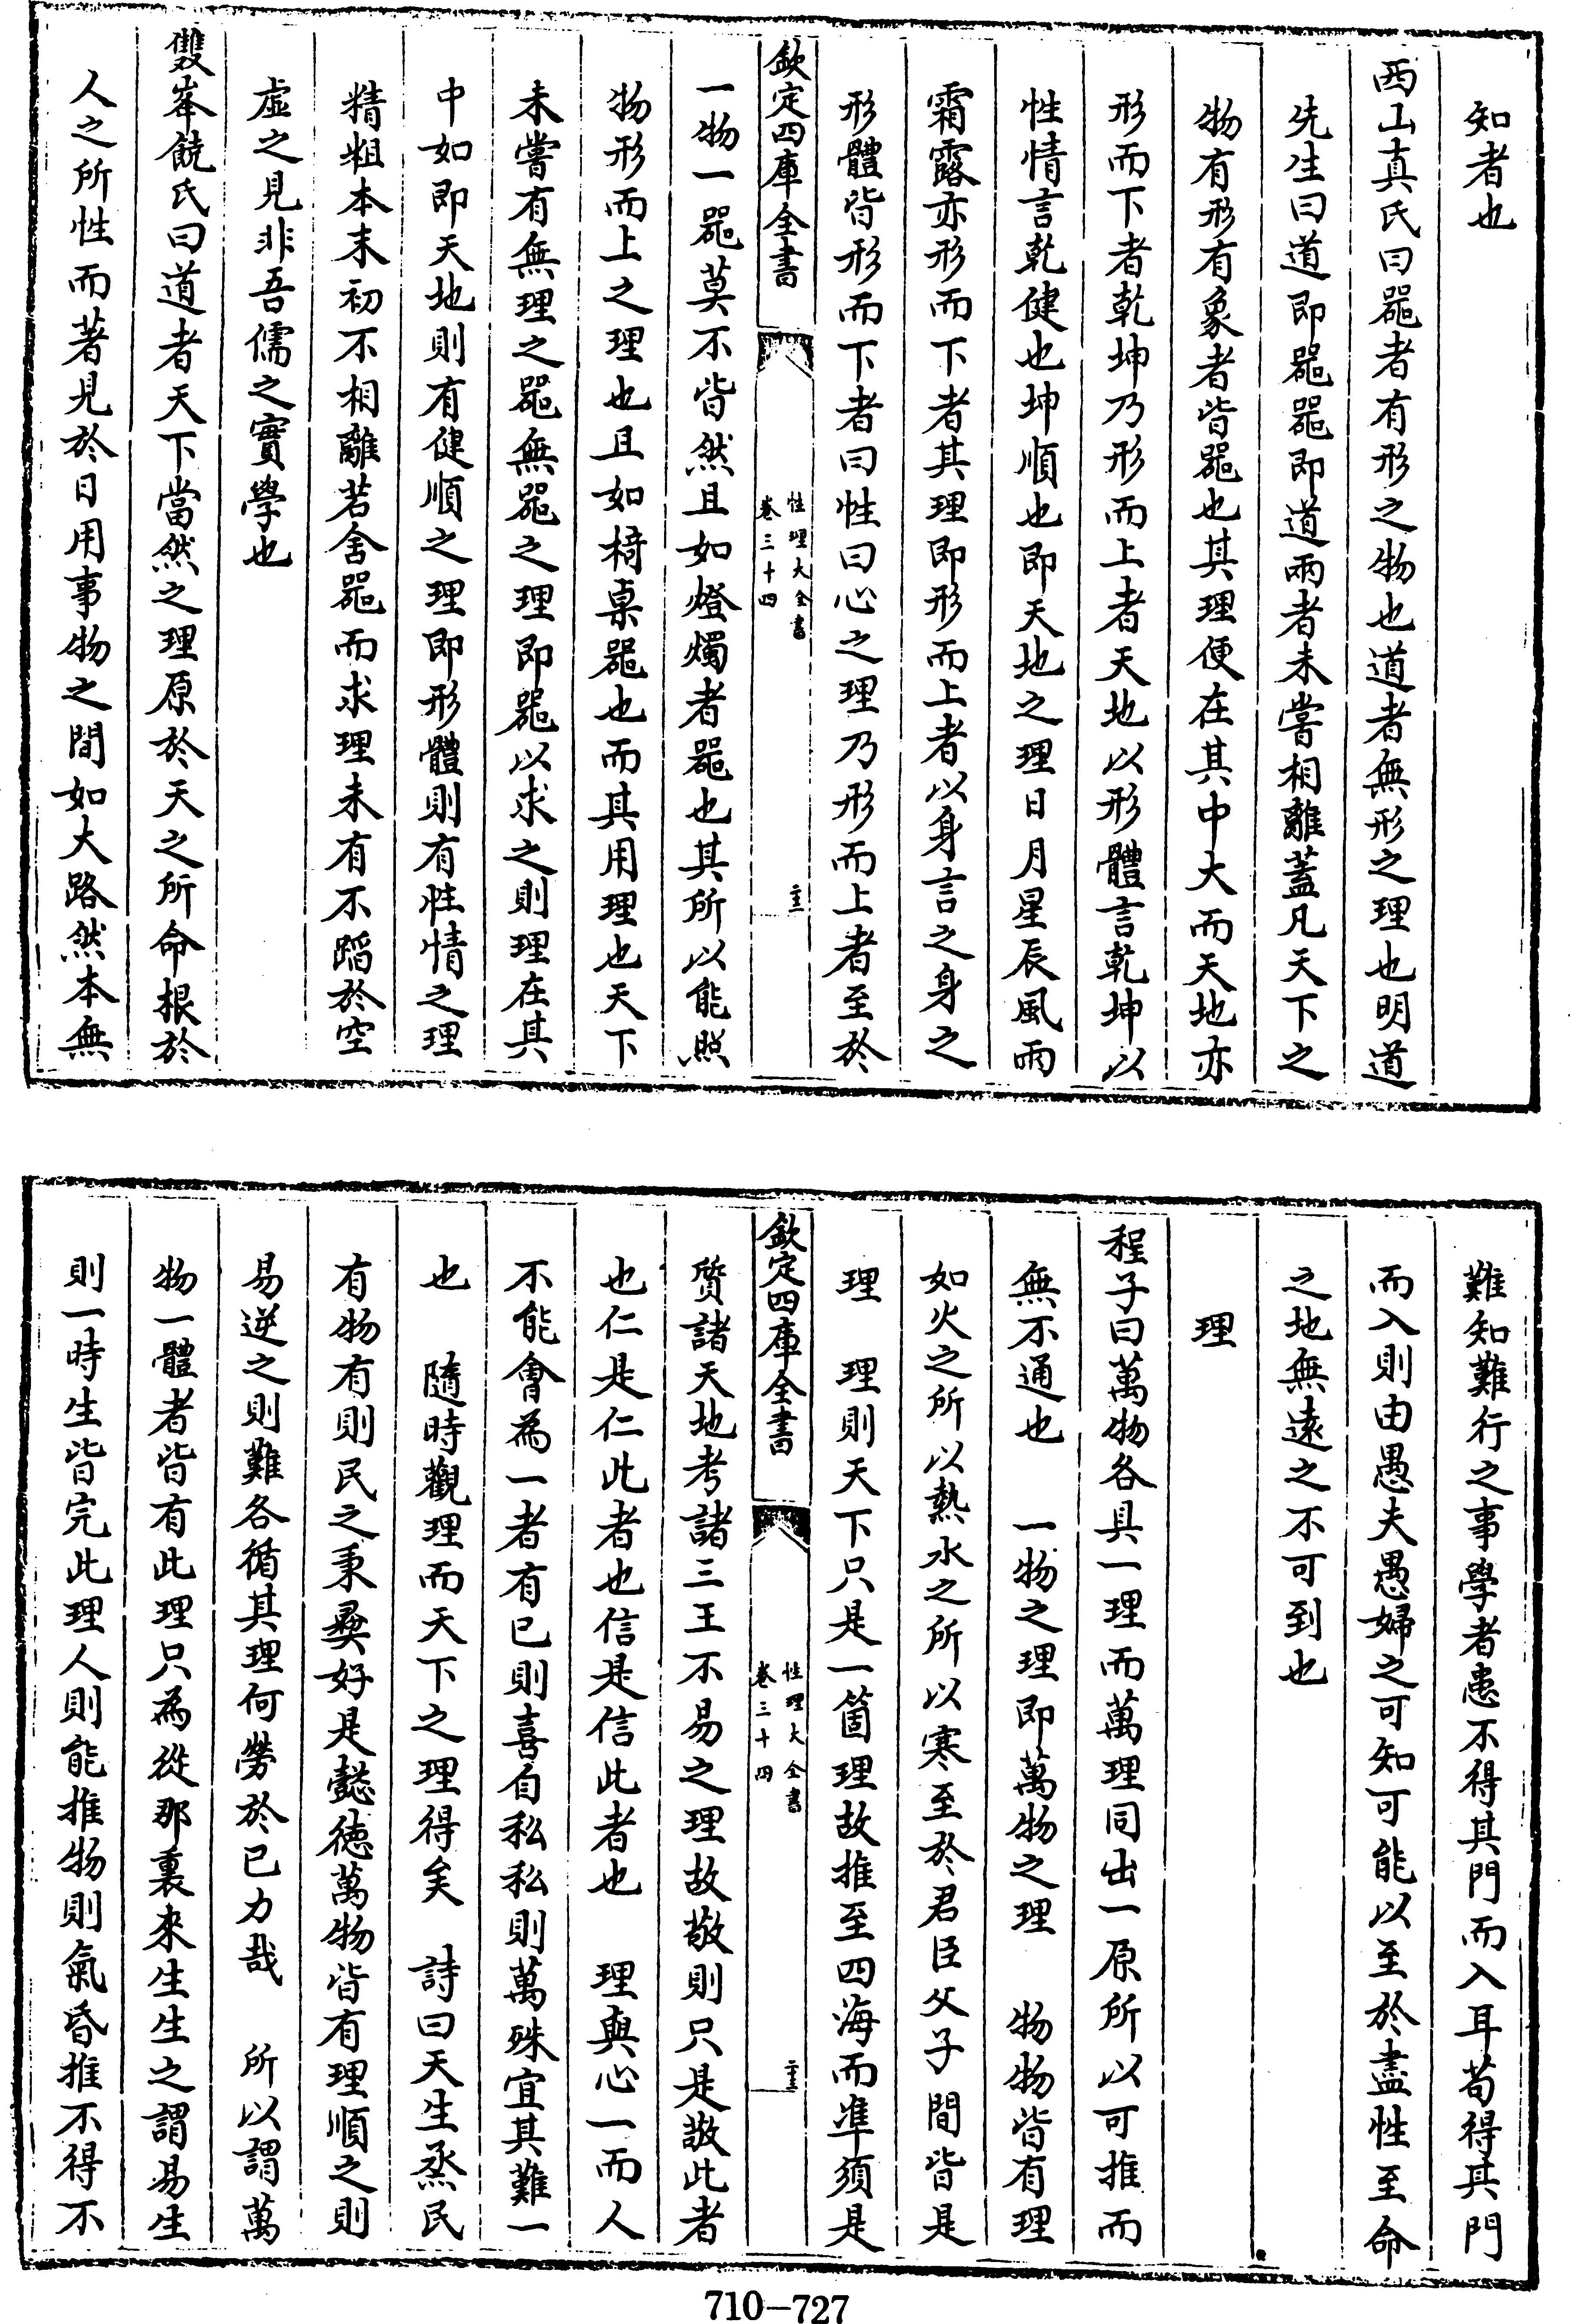 知者也
西山真氏曰噐者有形之物也道者無形之理也明道
先生曰道即噐噐即道兩者未嘗相離蓋凡天下之
物有形有象者皆噐也其理便在其中大而天地亦
形而下者乾坤乃形而上者天地以形體言乾坤以
性情言乾健也坤順也即天地之理日月星辰風雨
霜露亦形而下者其理即形而上者以身言之身之
形體皆形而下者曰性曰心之理乃形而上者至於
欽定四庫全書
性理大全書
卷三十四
一物一噐莫不皆然且如燈燭者噐也其所以能照
物形而上之理也且如椅桌噐也而其用理也天下
未嘗有無理之噐無噐之理即噐以求之則理在其
中如即天地則有健順之理即形體則有性情之理
精粗本末初不相離若舍噐而求理未有不蹈於空
虛之見非吾儒之實學也
雙峯饒氏曰道者天下當然之理原於天之所命根於
人之所性而著見於日用事物之間如大路然本無
難知難行之事學者患不得其門而入耳苟得其門
而入則由愚夫愚婦之可知可能以至於盡性至命
之地無遠之不可到也
理
程子曰萬物各具一理而萬理同出一原所以可推而
無不通也 一物之理即萬物之理 物物皆有理
如火之所以熱水之所以寒至於君臣父子間皆是
理 理則天下只是一箇理故推至四海而準須是
欽定四庫全書
性理大全書
卷三十四
質諸天地考諸三王不易之理故敬則只是敬此者
也仁是仁此者也信是信此者也 理與心一而人
不能會為一者有已則喜自私私則萬殊宜其難一
也 隨時觀理而天下之理得矣 詩曰天生烝民
有物有則民之秉彛好是懿徳萬物皆有理順之則
易逆之則難各循其理何勞於已力哉 所以謂萬
物一體者皆有此理只為從那裏來生生之謂易生
則一時生皆完此理人則能推物則氣昏推不得不
710—727